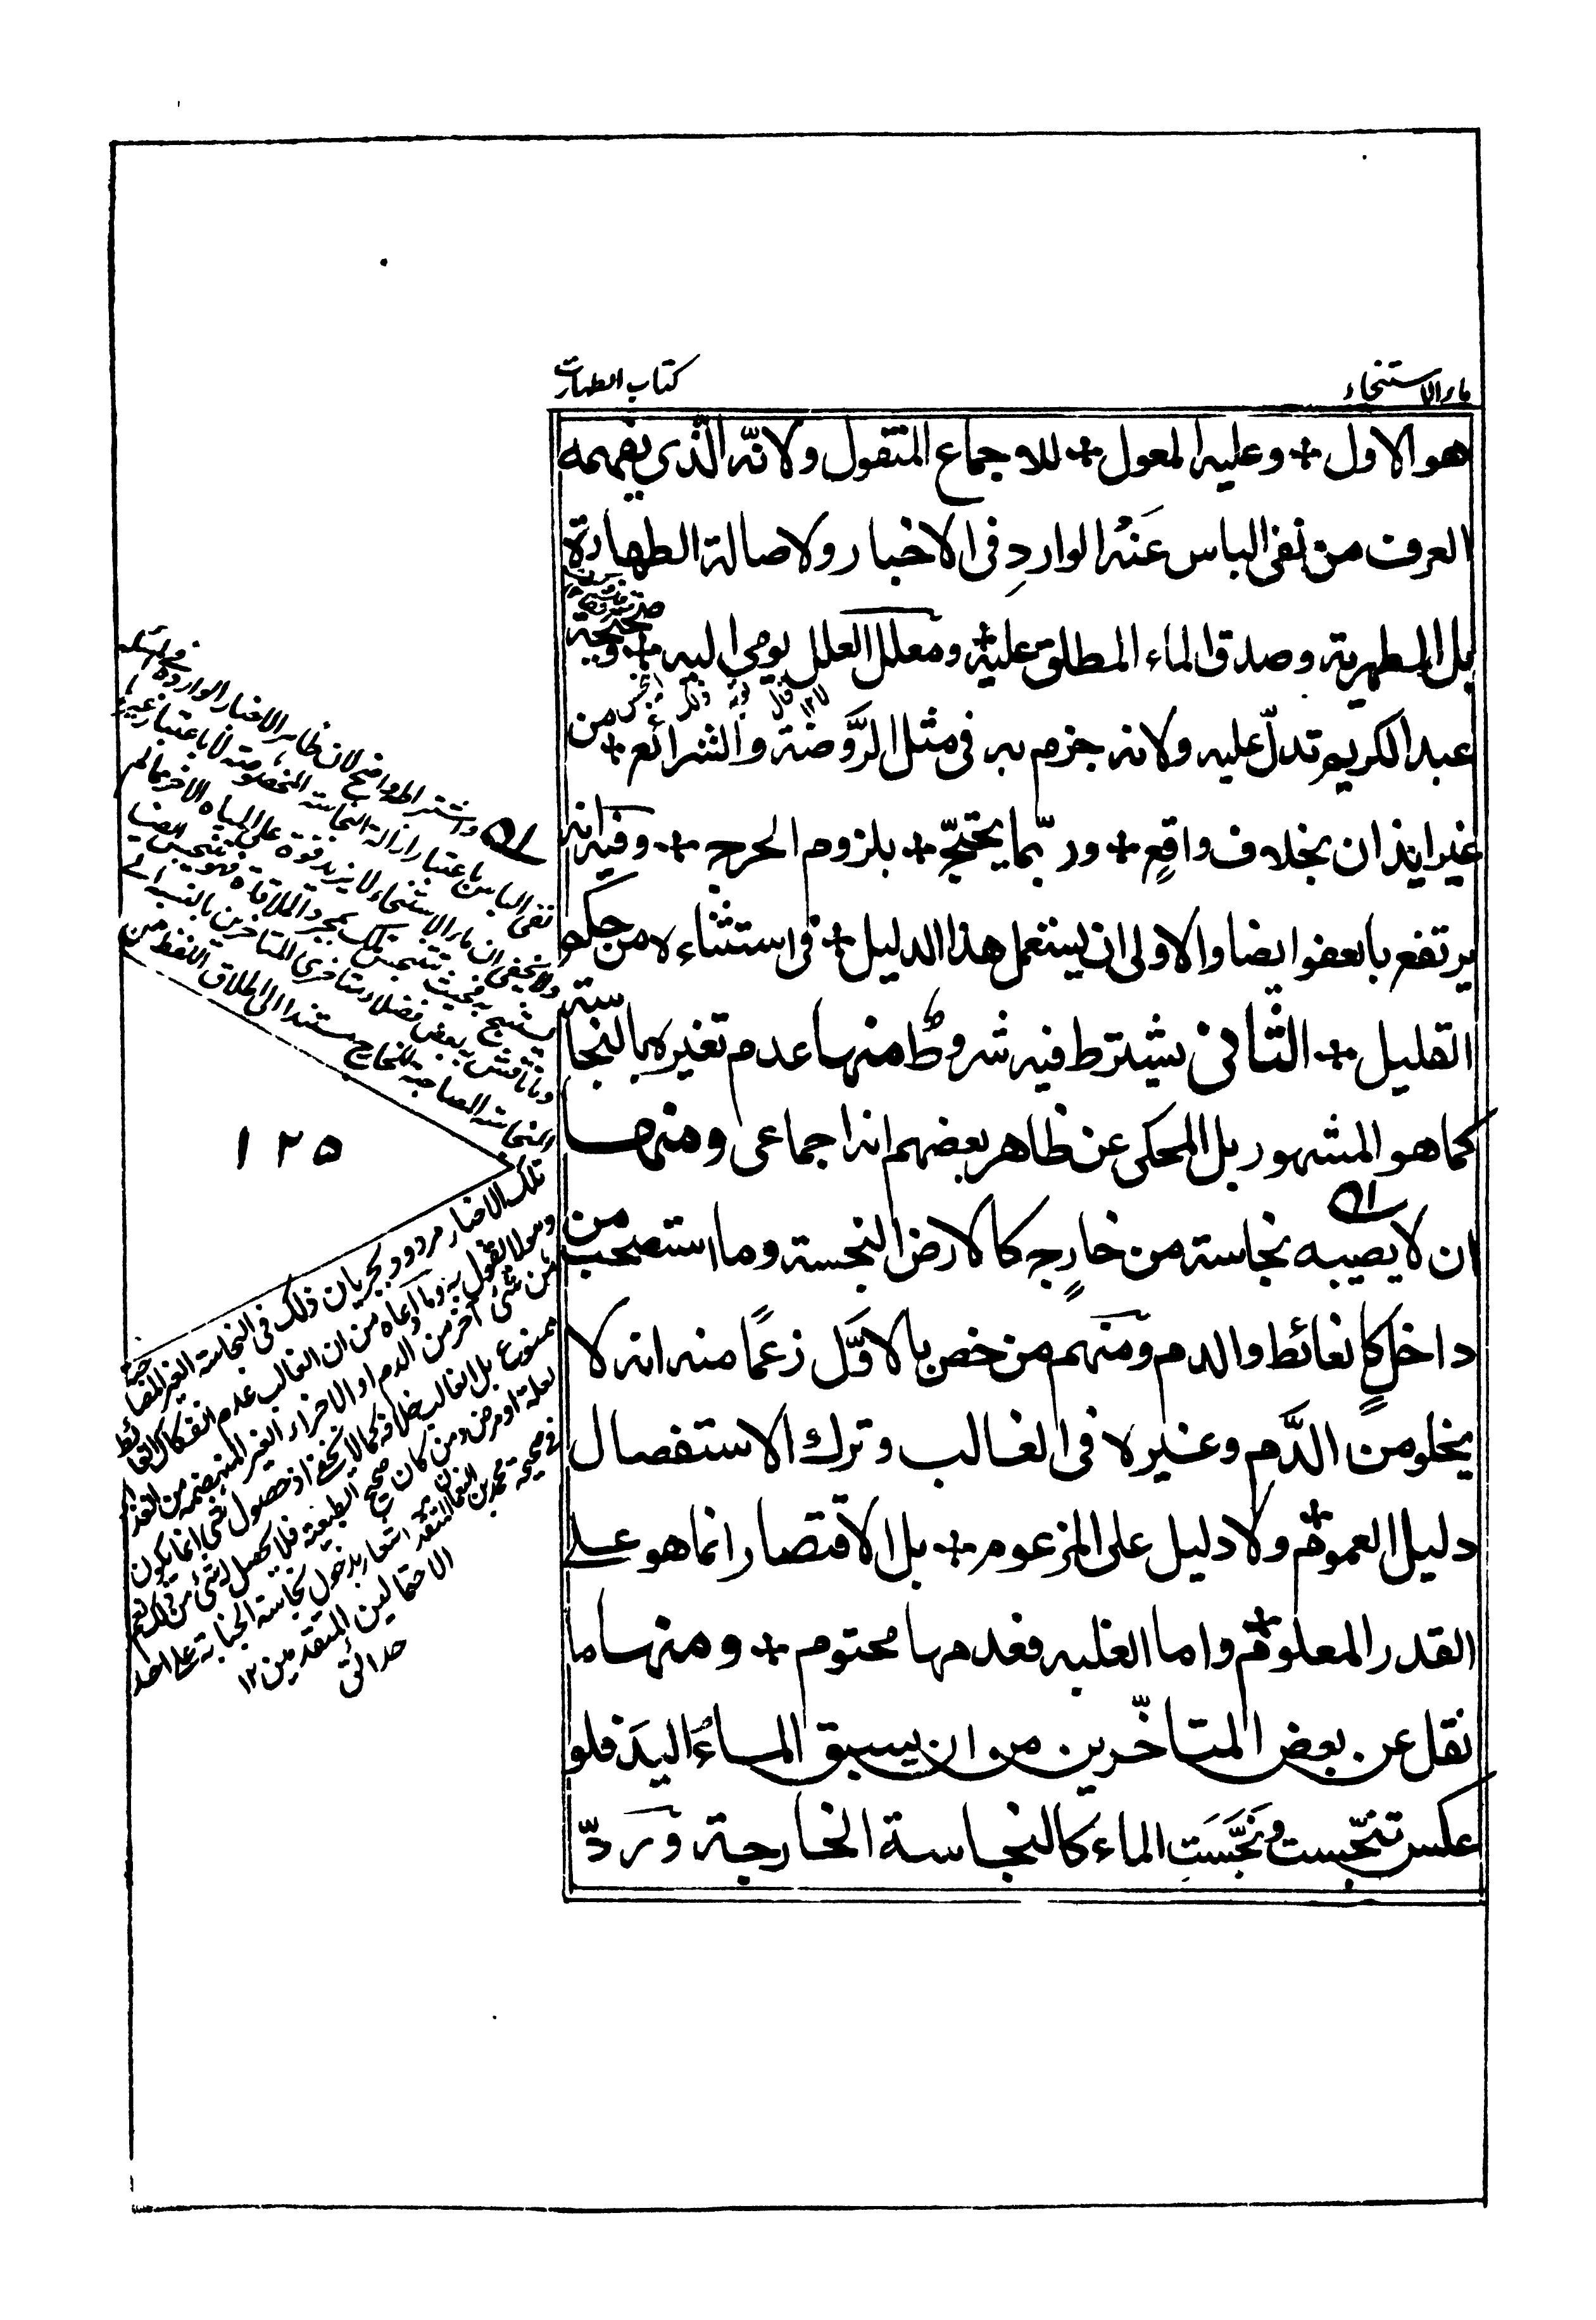 ماء الاستنجاء
كتاب الطهارت
هو الاول + وعليه المعول + للاجماع المنقول ولانّه الّذى يفهمه
العرف من نفى الباس عَنْه الواردِ فى الاخبار ولاصالة الطهارة
بل المطهرية وصدق الماء المطلق عليه + ومعلل العلل يومى اليه + وصحيحة
عبد الكريم تدلّ عليه ولانه جزم به فى مثل الرَّوضة والشرائع + من
غير ايذان بخلاف واقعٍ + وربّما يحتجّ + بلزوم الحرج + وفيه انه
يرتفع بالعفو ايضا والاولى ان يستعمل هذا الدليل + فى استثناءه من حكم
القليل + الثانى يشترط فيه شروط منها عدم تغيره بالنجاسته
كما هو المشهور بل المحكى عن ظاهر بعضهم انه اجماعى ومنها
ان لا يصيبه نجاسة من خارجٍ كالارض النجسة وما استصحب من
داخلٍ كالغائط والدم ومنهم من خص بالاوّل زعمًا منه انه لا
يخلو من الدَّم وغيره فى الغالب وترك الاستفصال
دليل العموم + ولا دليل على المزعوم + بل الاقتصار انما هو على
القدر المعلوم + واما الغلبه فعدمها محتوم + ومنها ما
نقل عن بعض المتاخّرين من ان يسبق الماءُ اليدَ فلو
عكس تنجّست ونَجَّسَت الماء كالنجاسة الخارجة ورَدّ
واشتراطه واضح لان ظاهر الاخبار الواردة
نفى الباس باعتبار ازالة النجاسة المخصوصة لا باعتبار غيرها
ولا يخفى ان ماء الاستنجاء لا يزيد قوة على المياه الاخر
١٢٥
تلك الاخبار مردود بجريان ذلك فى النجاسة الغير
وهو لا يقول به وما ادعاه من ان الغالب عدم انفكاك الغائط
عن شئ آخر من الدم او الاجزاء الغير المنهضمة من الغذاء
ممنوع بل الغالب خلافه كما لا يخفى اذ حصول شئ انما يكون
لعلة او مرض ومن كان صحيح الطبيعة فلا يحصل له شئ من ذلك نعم
فى صحيحة محمد بن النعمان اشعار بدخول نجاسة الجنابة على احد
الاحتمالين المتقدمين ١٢
حدائق